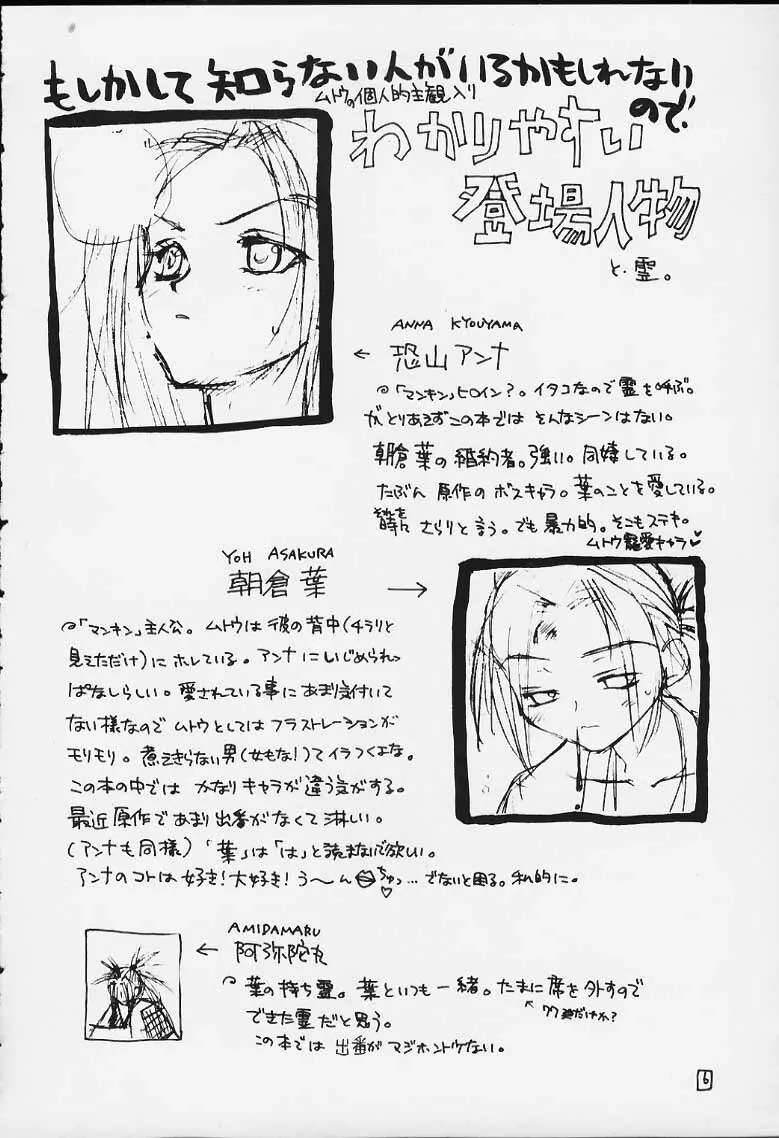 もしかして知らない人がいるかもしれない
ので
ムトウの個人的主観入り
わかりやすい
登場人物
と・霊。
ANNA KYOUYAMA
← 恐山アンナ
「マンキン」ヒロイン?。イタコなので霊を呼ぶ。
がとりあえずこの本では そんなシーンはない。
朝倉葉の婚約者。強い。同棲している。
たぶん 原作の ボスキャラ。葉のことを愛している。
それを
時に さらりと言う。でも暴力的。そこもステキ。
ムトウ寵愛キャラ♥
YOH ASAKURA
朝倉 葉 →
「マンキン」主人公。ムトウは彼の背中(チラリと
見えただけ)にホレている。アンナにいじめられっ
ぱなしらしい。愛されている事にあまり気付いて
ない様なので ムトウとしては フラストレーションが
モリモリ。煮えきらない男(女もな!)てイラつくよな。
この本の中では かなりキャラが違う気がする。
最近原作であまり出番がなくて淋しい。
(アンナも同様)「葉」は「は」と読まないで欲しい。
アンナのコトは好き!大好き!う〜ん ちゅっ♡…でないと困る。私的に。
AMIDAMARU
← 阿弥陀丸
葉の持ち霊。葉といつも一緒。たまに席を外すので
できた霊だと思う。
この本では 出番がマジホントウない。
6